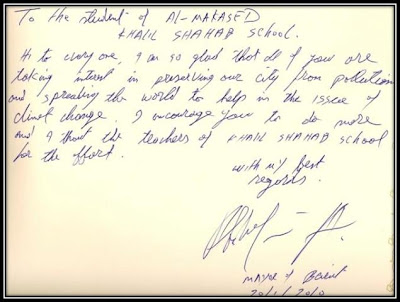 To the student of AL-MAKASED
KHALIL SHAHAB School.
Hi to every one, I am so glad that all of you are
taking interest in preserving our city from pollution
and spreading the world to help in the issue of
climet change. I encourage you to do more
and I thank the teachers of KHALIL SHAHAB School
for the effort.
with my best
regards.
Mayor of Beirut
20/1/2010